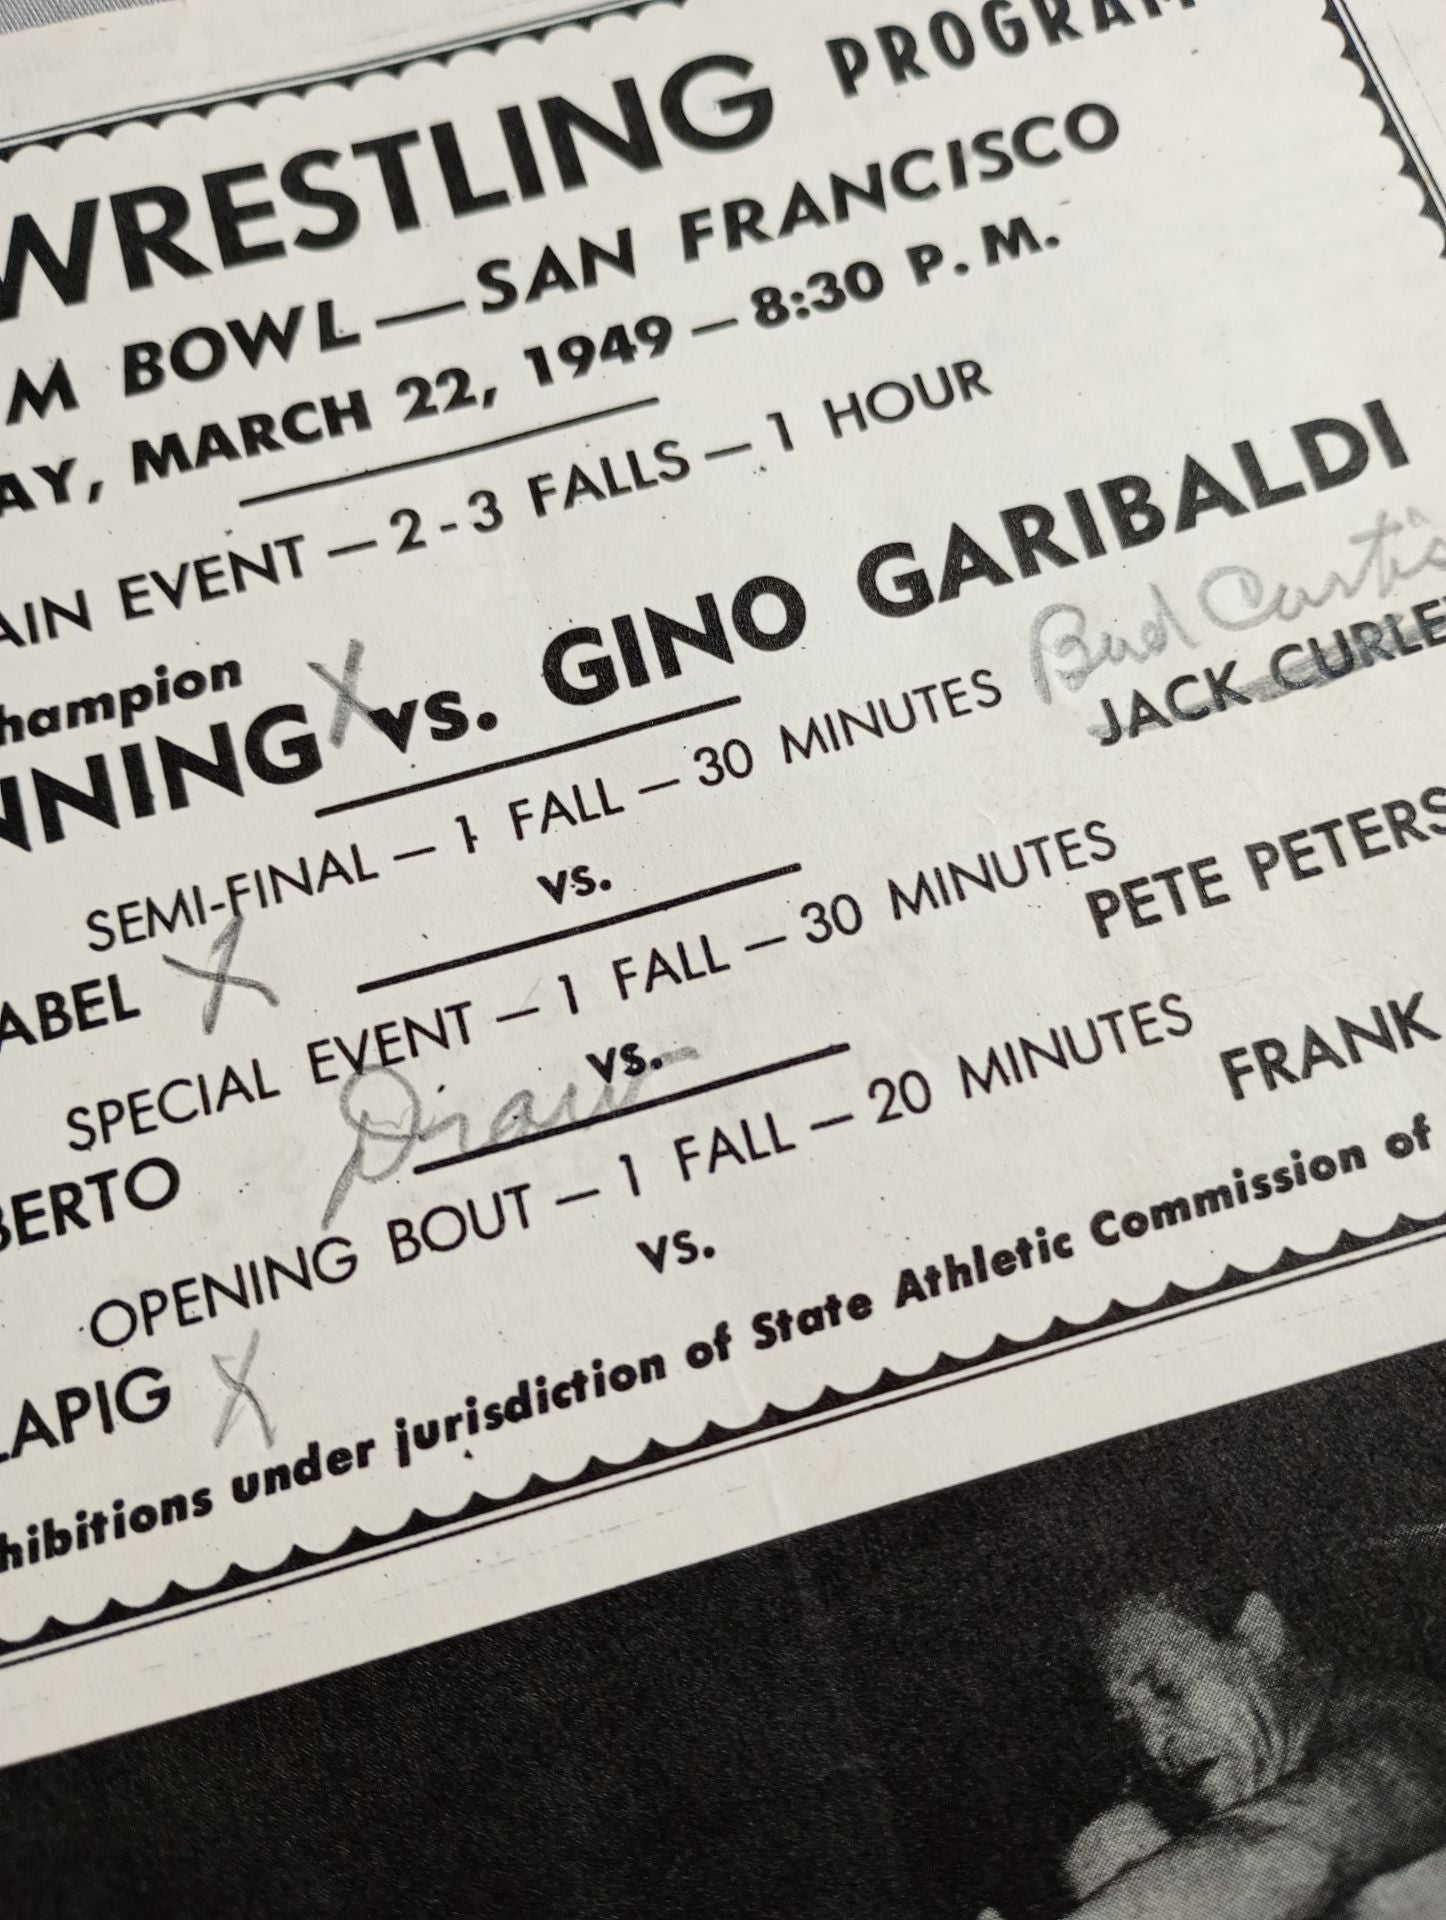 WRESTLING PROGRAM
M BOWL—SAN FRANCISCO
AY, MARCH 22, 1949—8:30 P. M.
AIN EVENT—2-3 FALLS—1 HOUR
hampion
NNING X vs. GINO GARIBALDI
Bud Curtis
SEMI-FINAL—1 FALL—30 MINUTES
ABEL X vs. JACK CURLE
SPECIAL EVENT—1 FALL—30 MINUTES
BERTO Draw vs. PETE PETERS
OPENING BOUT—1 FALL—20 MINUTES
LAPIG X vs. FRANK
hibitions under jurisdiction of State Athletic Commission of